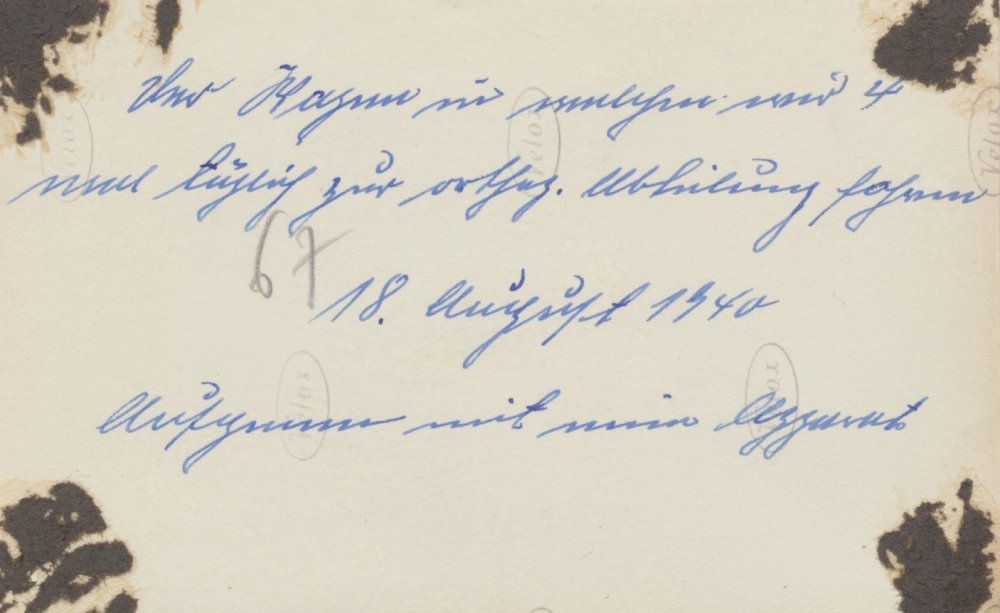 Der Wagen in welchen wir 4
mal täglich zur orthop. Abteilung fahren
67
18. August 1940
mit mein Apparat
Velox
Velox
Velox
Velox
Velox